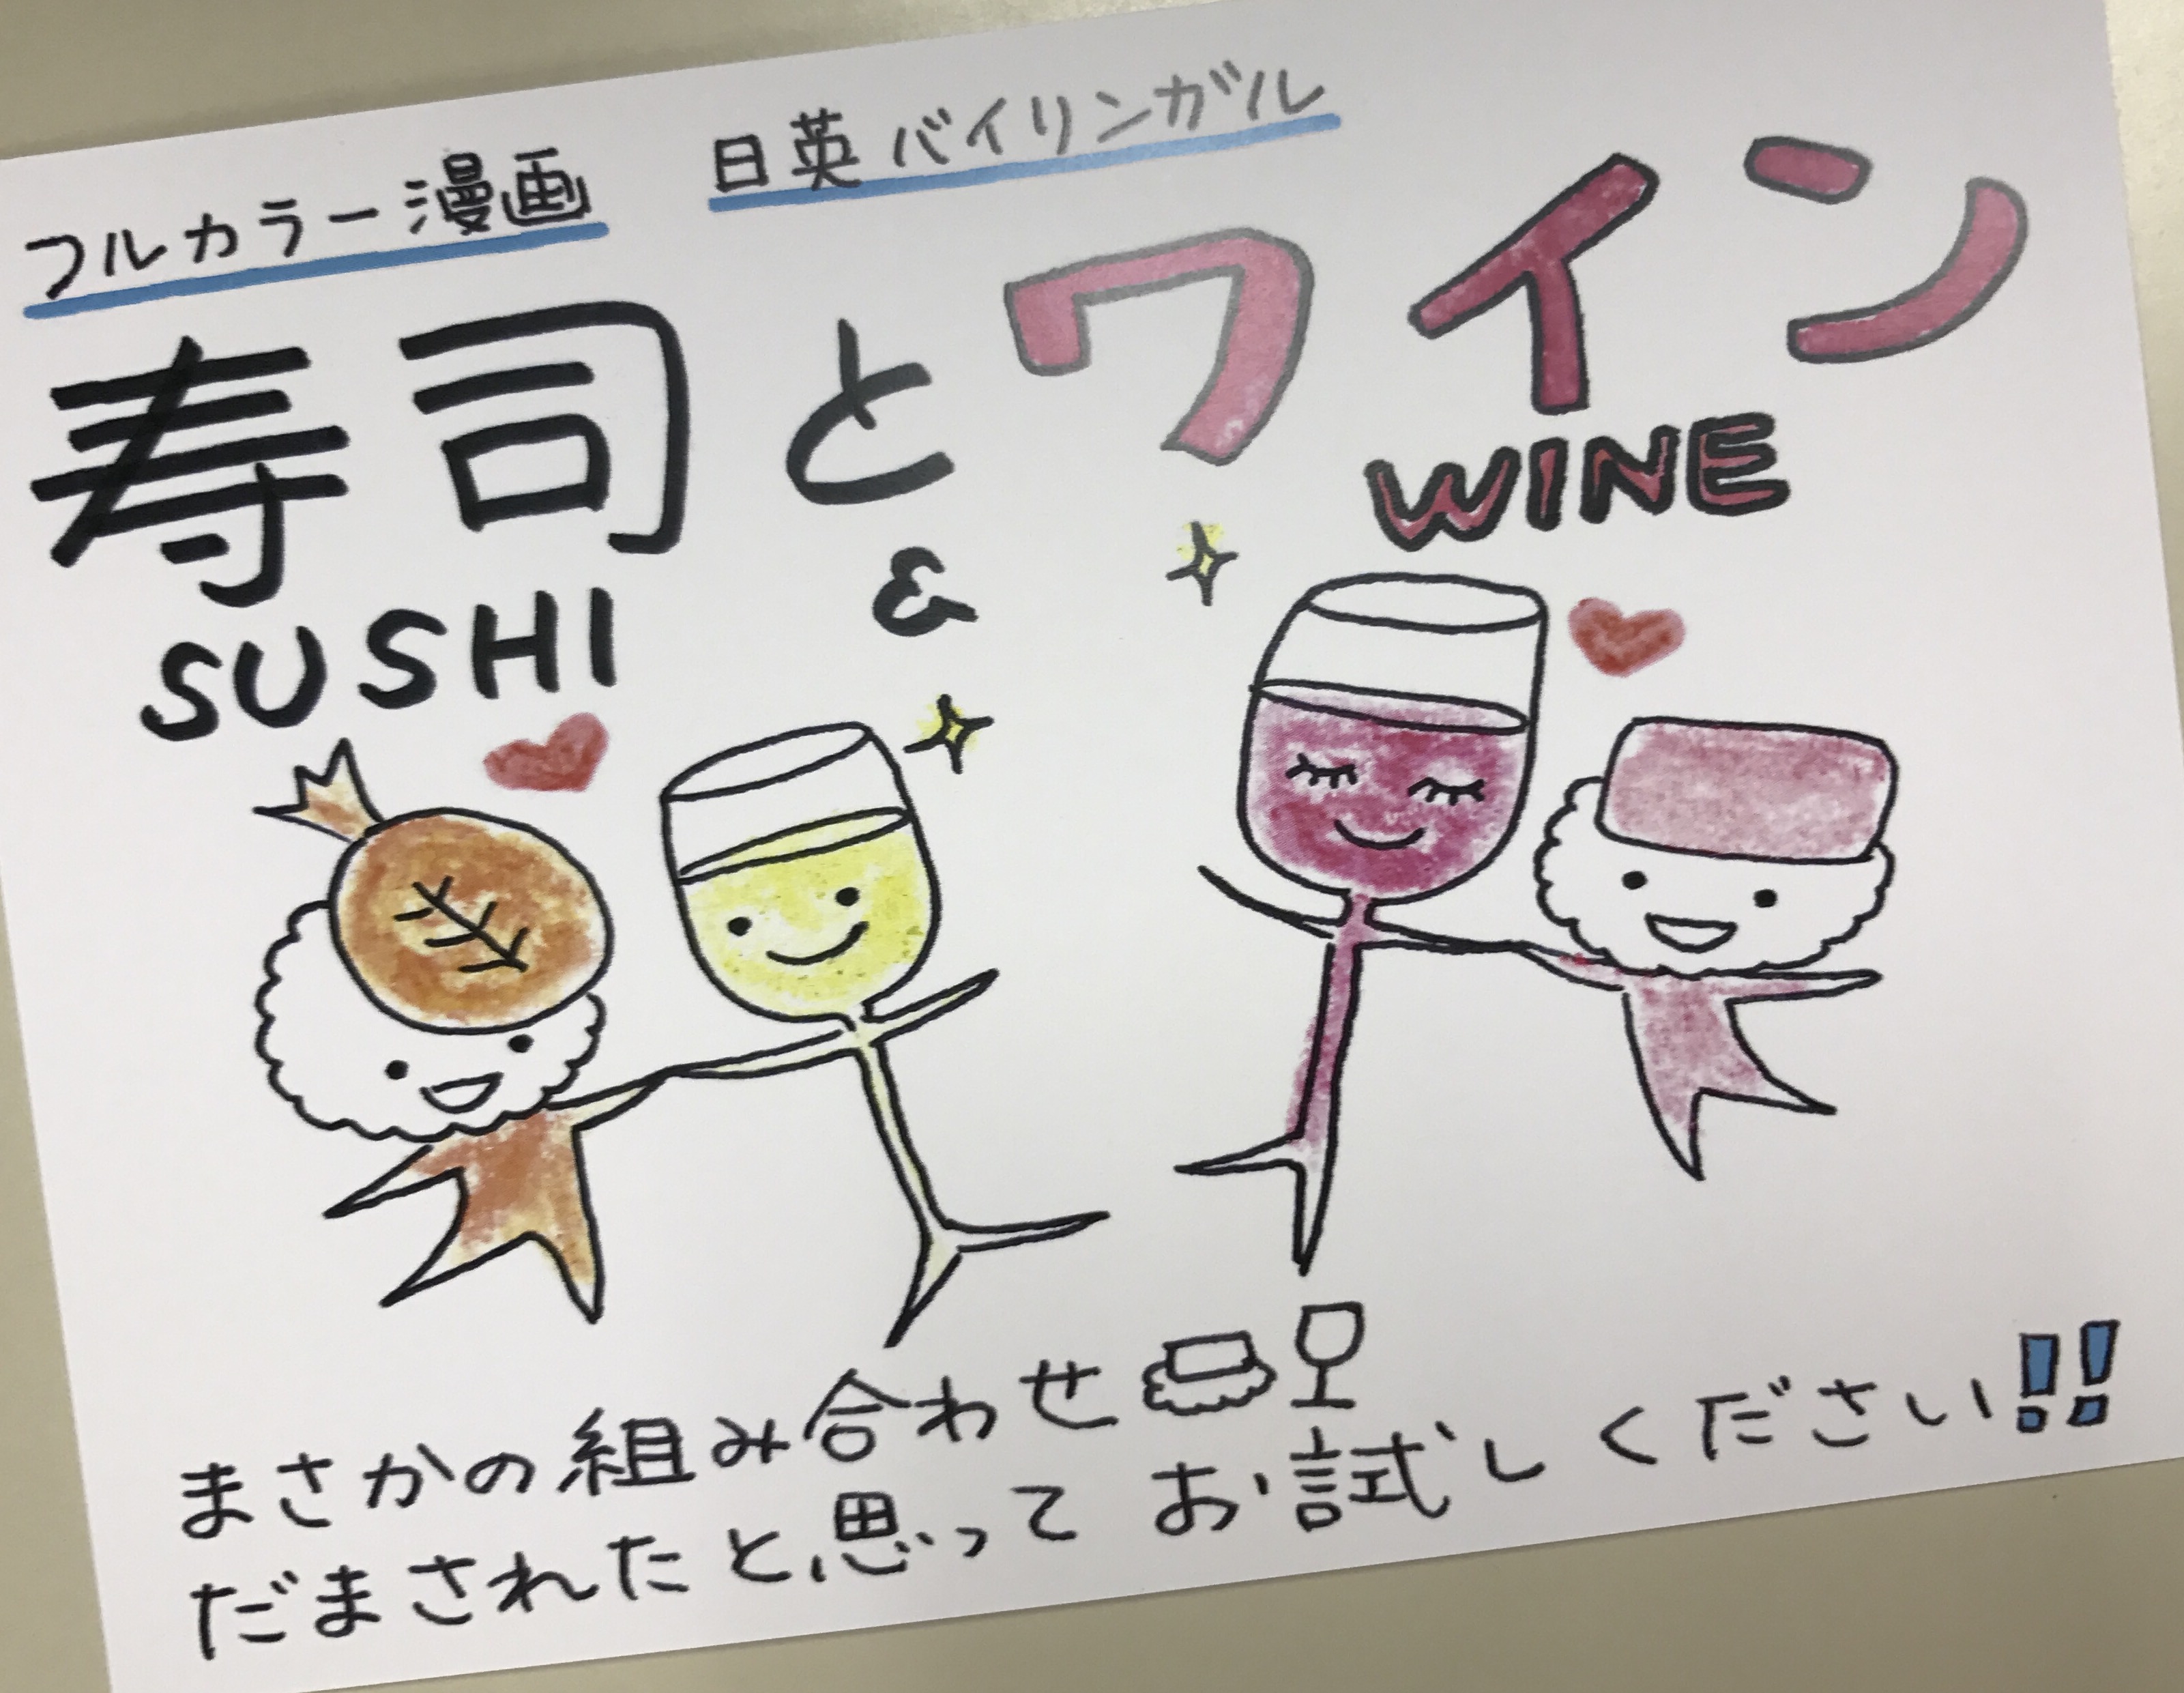 フルカラー漫画　日英バイリンガル
寿司とワイン
SUSHI & WINE
まさかの組み合わせ
だまされたと思って お試しください!!